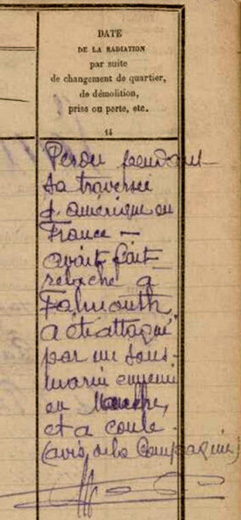 DATE
DE LA RADIATION
par suite
de changement de quartier,
de démolition,
prise ou perte, etc.
14
Perdu pendant
sa traversée
d'amérique en
France —
avait fait
relâche à
Falmouth,
a été attaqué
par un sous-
marin ennemi
en Manche,
et a coulé.
(avis de la Compagnie)